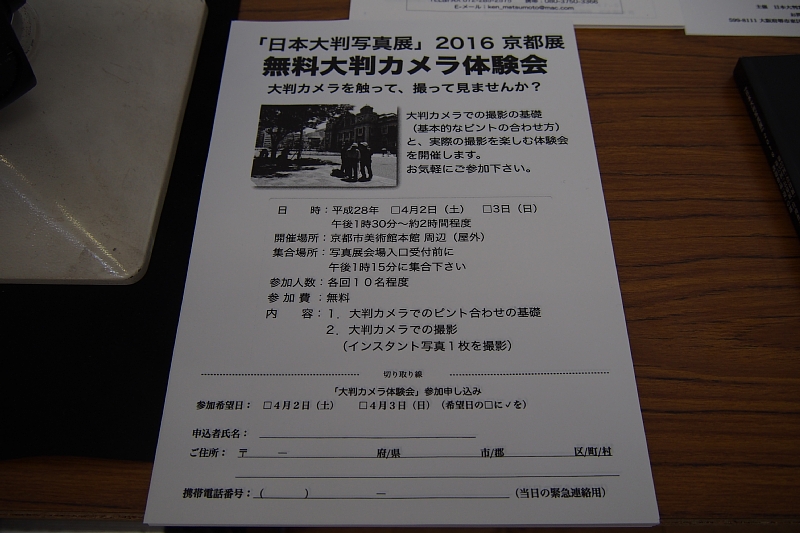 E-メール：ken_matsumoto@mac.com
主催　日本大判
599-8111 大阪府堺市東区
「日本大判写真展」2016 京都展
無料大判カメラ体験会
大判カメラを触って、撮って見ませんか？
大判カメラでの撮影の基礎
（基本的なピントの合わせ方）
と、実際の撮影を楽しむ体験会
を開催します。
お気軽にご参加下さい。
日　　時：平成28年　□4月2日（土）　□3日（日）
午後1時30分～約2時間程度
開催場所：京都市美術館本館 周辺（屋外）
集合場所：写真展会場入口受付前に
午後1時15分に集合下さい
参加人数：各回１０名程度
参 加 費 ：無料
内　　容：１．大判カメラでのピント合わせの基礎
２．大判カメラでの撮影
（インスタント写真１枚を撮影）
切り取り線
「大判カメラ体験会」参加申し込み
参加希望日：　□４月２日（土）　　□４月３日（日）（希望日の□に✓を）
申込者氏名：
ご住所：　〒　　―　　　　　　府/県　　　　　　市/郡　　　　　区/町/村
携帯電話番号：（　　　）　　　　―　　　　　　　　（当日の緊急連絡用）